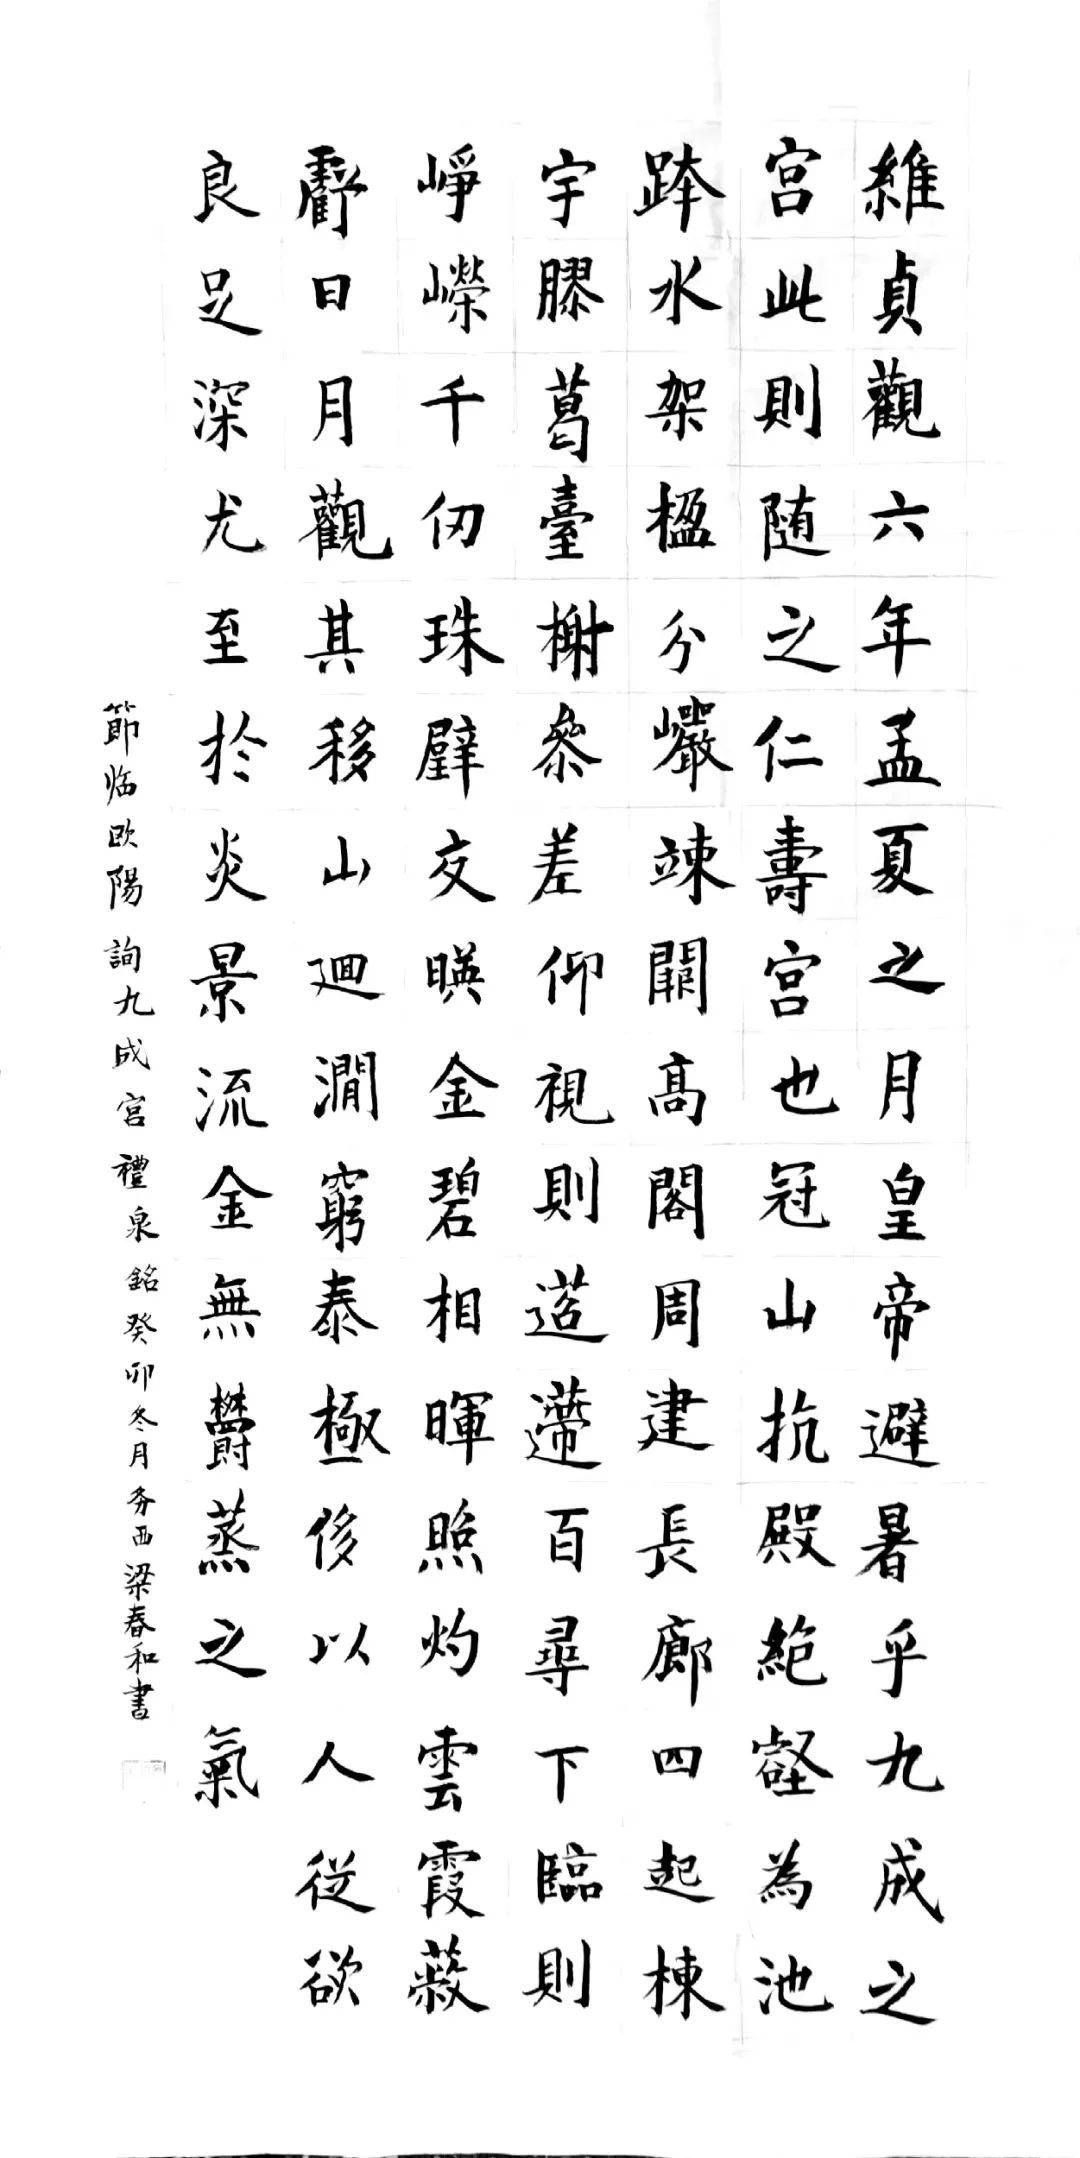 維貞觀六年孟夏之月皇帝避暑乎九成之
宮此則随之仁壽宮也冠山抗殿絶壑為池
跨水架楹分巖竦闕高閣周建長廊四起棟
宇膠葛臺榭叅差仰視則迢遰百尋下臨則
崢嶸千仞珠璧交暎金碧相暉照灼雲霞蔽
虧日月觀其移山廻澗窮泰極侈以人従欲
良足深尤至於炎景流金無欝蒸之氣
節临欧陽詢九成宮禮泉銘癸卯冬月 西梁春和書